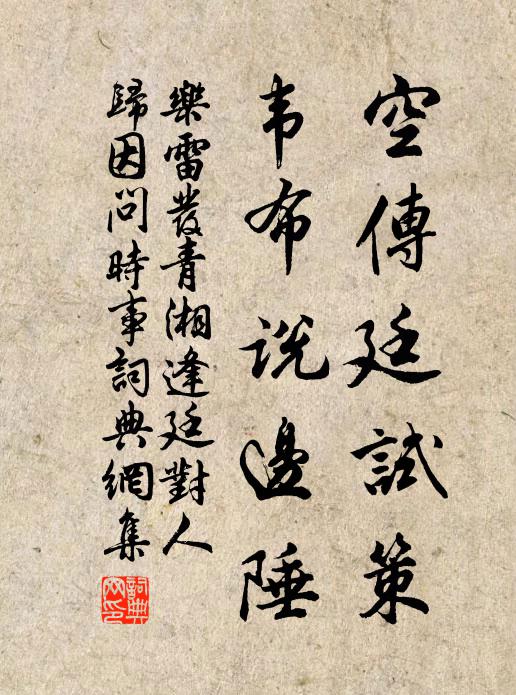 空傳廷試策
韦布説邊陲
樂雷發青湘逢廷對人
歸因問時事詞典網集
詞典
网印